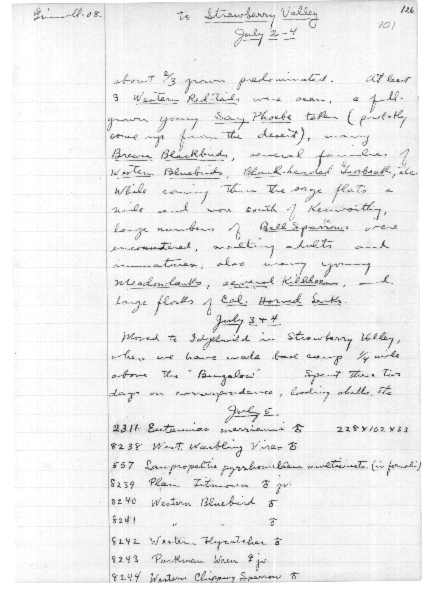 Grinnell-08. to Strawberry Valley 126
July 2-4 101
about 2/3 grown predominated. At least
3 Western Redtails were seen, a full-
grown young Say Phoebe taken (probably
come up from the desert), many
Brewer Blackbirds, several families of
Western Bluebirds, Black-headed Grosbeaks, etc.
While coming thru the sage flats a
mile and more south of Kenworthy,
large numbers of Bell Sparrows were
encountered, moulting adults and
immatures, also many young
Meadowlarks, several Killdeers, and
large flocks of Cal. Horned Larks.
July 3+4
Moved to Idyllwild in Strawberry Valley,
where we have made base camp 1/4 mile
above the "Bungalow" Spent these two
days on correspondence, loading shells, etc
July 5.
2311 Eutamias merriami ♂ 228×102×33
8238 West. Warbling Vireo ♂
557 Lampropeltis pyrrhomelaena multicincta (in formalin)
8239 Plain Titmouse ♂ jv.
8240 Western Bluebird ♂
8241 " " ♂
8242 Western Flycatcher ♂
8243 Parkman Wren ♀ jv.
8244 Western Chipping Sparrow ♂